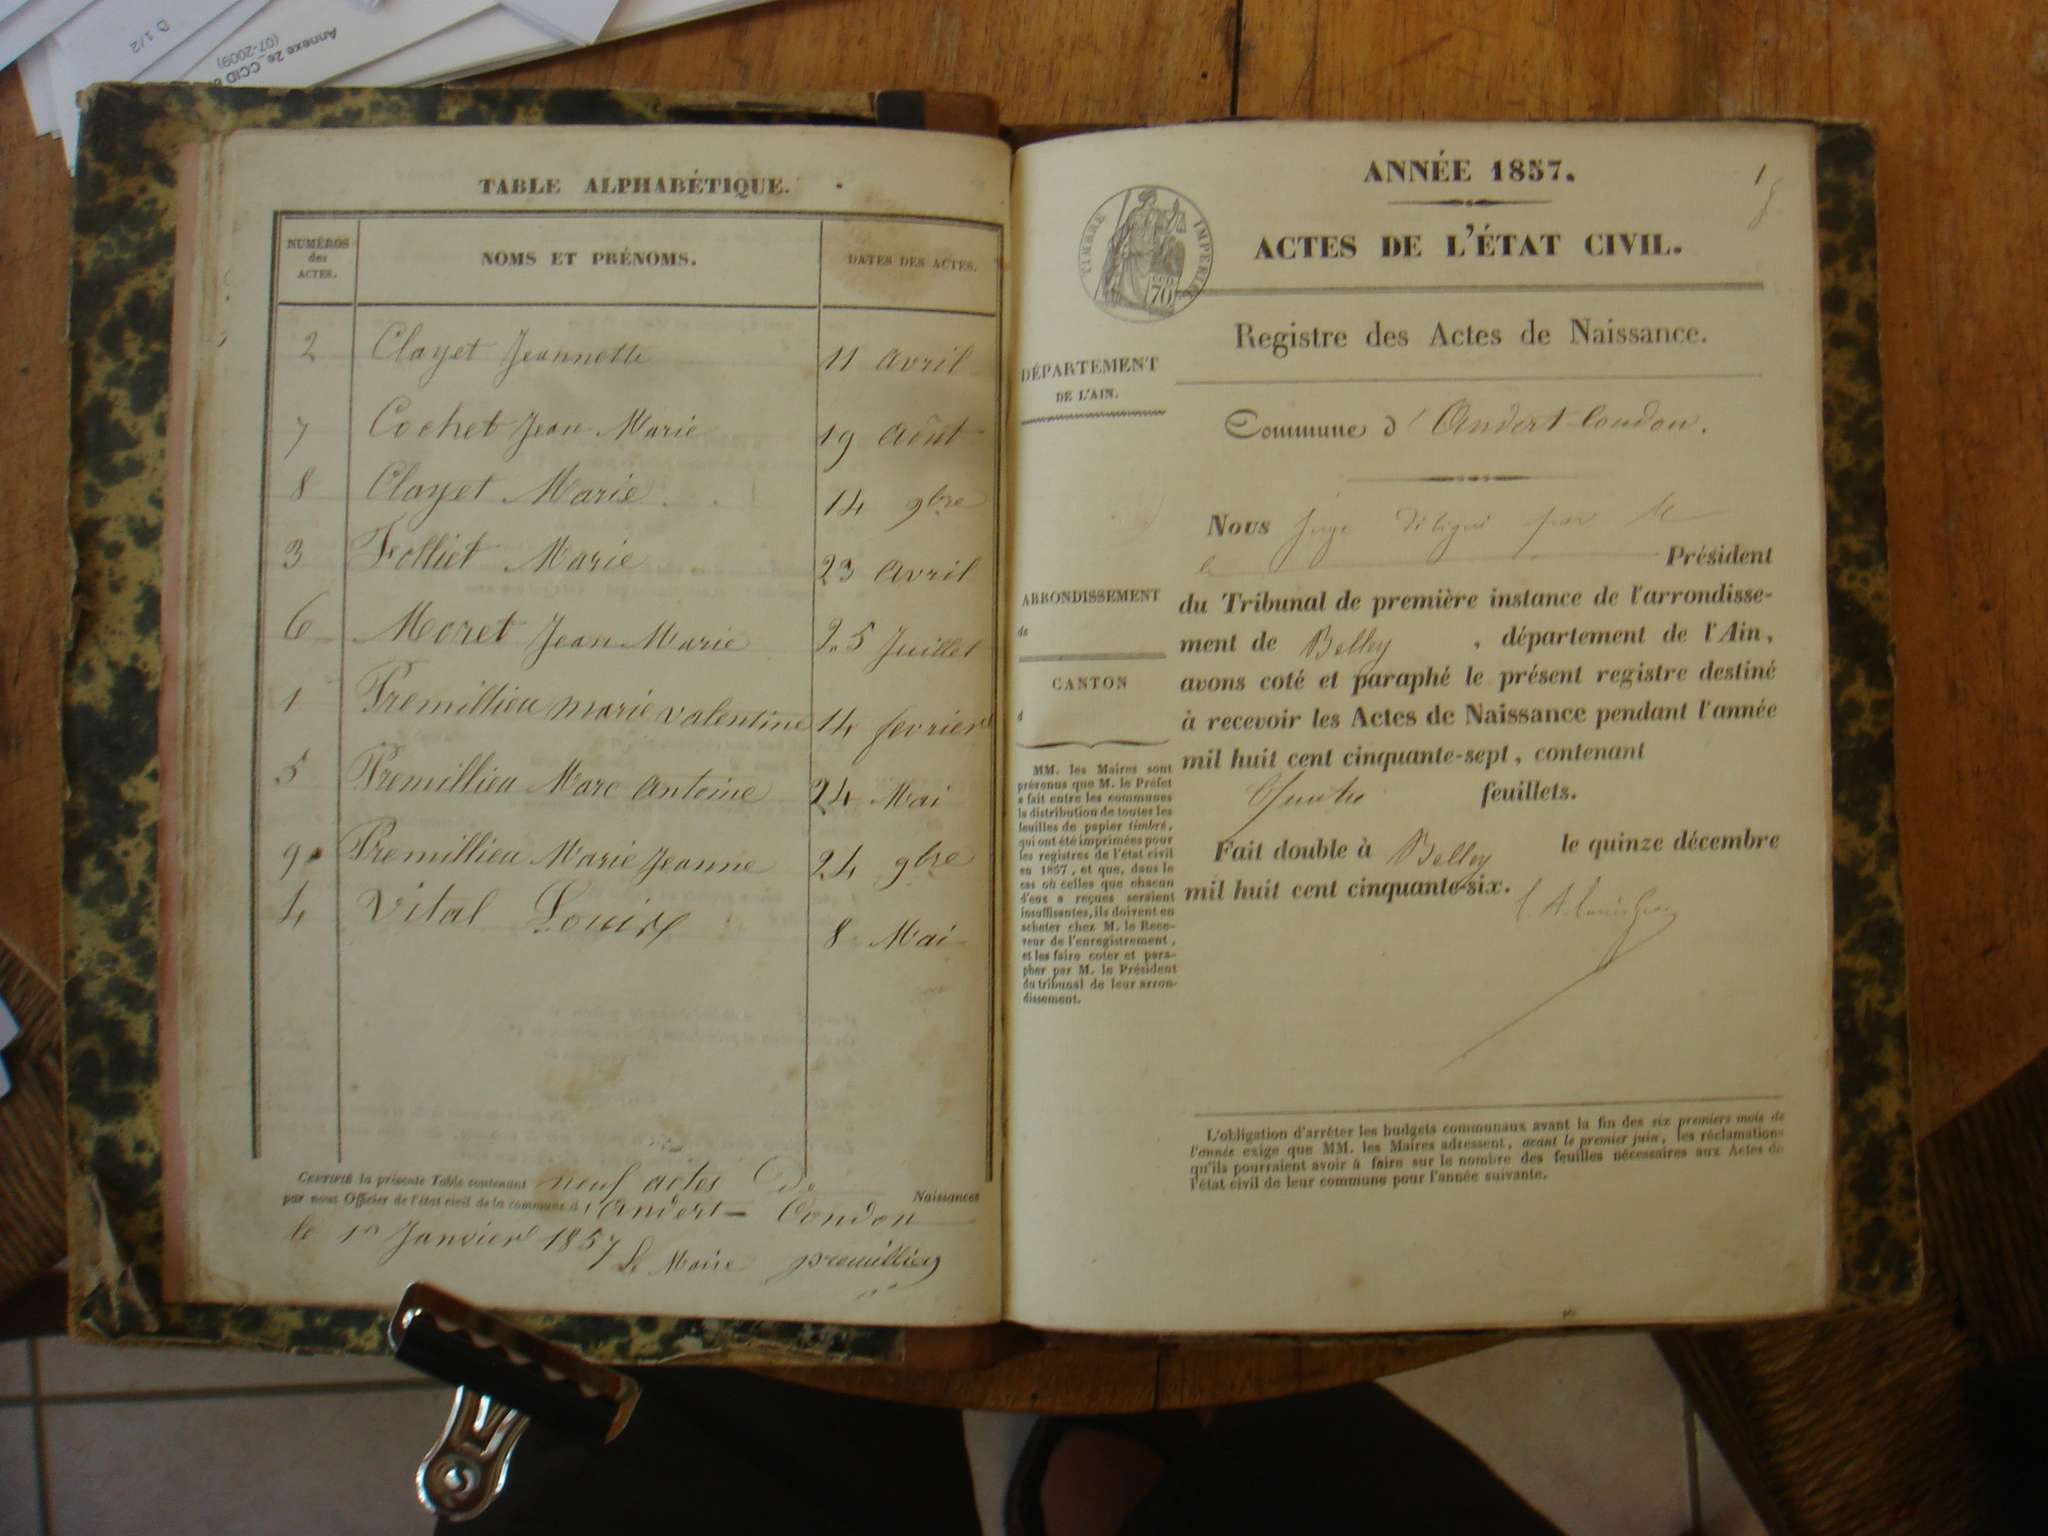 Annexe 2e_CCID
(07-2009)
D 1/2
TABLE ALPHABÉTIQUE.
NUMÉROS
des
ACTES.
NOMS ET PRÉNOMS.
DATES DES ACTES.
2 Clayet Jeannette 11 avril
7 Cochet Jean Marie 19 Août
8 Clayet Marie 14 9bre
3 Folliet Marie 23 avril
6 Moret Jean Marie 25 Juillet
1 Premillieu marie valentine 14 fevrier
5 Premillieu Marc antoine 24 Mai
9 Premillieu Marie Jeanne 24 9bre
4 Vital Louise 8 Mai
CERTIFIÉ la présente Table contenant neuf actes De Naissances
par nous Officier de l'état civil de la commune d'Andert-Condon
le 1er Janvier 1857 Le Maire premillieu
ANNÉE 1857.
1
TIMBRE IMPÉRIAL
70
ACTES DE L'ÉTAT CIVIL.
Registre des Actes de Naissance.
DÉPARTEMENT
DE L'AIN.
Commune d'Andert-Condon.
Nous Juge délégué par M
le Président
ARRONDISSEMENT
de
du Tribunal de première instance de l'arrondisse-
ment de Belley, département de l'Ain,
CANTON
d
avons coté et paraphé le présent registre destiné
à recevoir les Actes de Naissance pendant l'année
mil huit cent cinquante-sept, contenant
Quatre feuillets.
Fait double à Belley le quinze décembre
mil huit cent cinquante-six.
MM. les Maires sont
prévenus que M. le Préfet
a fait entre les communes
la distribution de toutes les
feuilles de papier timbré,
qui ont été imprimées pour
les registres de l'état civil
en 1857, et que, dans le
cas où celles que chacun
d'eux a reçues seraient
insuffisantes, ils doivent en
acheter chez M. le Rece-
veur de l'enregistrement,
et les faire coter et para-
pher par M. le Président
du tribunal de leur arron-
dissement.
L'obligation d'arrêter les budgets communaux avant la fin des six premiers mois de
l'année exige que MM. les Maires adressent, avant le premier juin, les réclamations
qu'ils pourraient avoir à faire sur le nombre des feuilles nécessaires aux Actes de
l'état civil de leur commune pour l'année suivante.